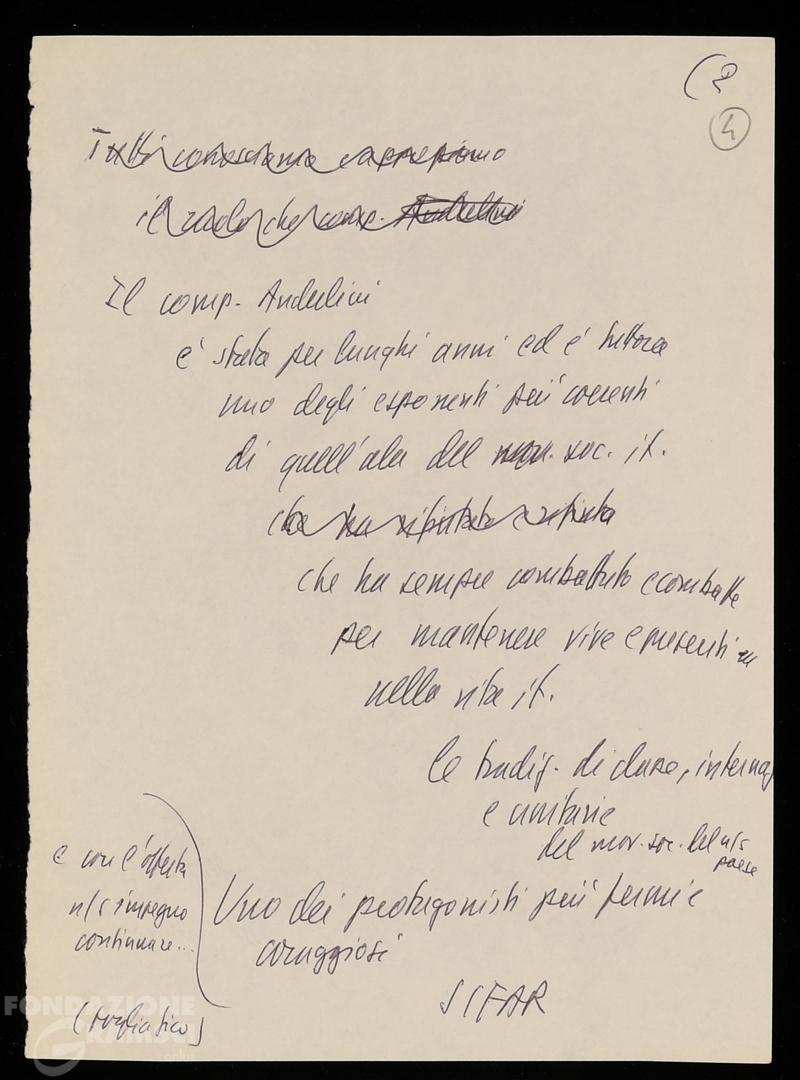 (2
4
Tutti conosciamo e apprezziamo
il ruolo che comp. Anderlini
Il comp. Anderlini
è stato per lunghi anni ed è tuttora
uno degli esponenti più coerenti
di quell'ala del mov. soc. it.
che ha
che ha sempre combattuto e combatte
per mantenere vive e presenti
nella vita it.
le tradiz. di classe, internaz
e unitarie
del mov. soc. del n/s
paese
e con
n/s impegno
continuare...
Uno dei protagonisti più fermi e
coraggiosi
SIFAR
FONDAZIONE
GRAMSCI